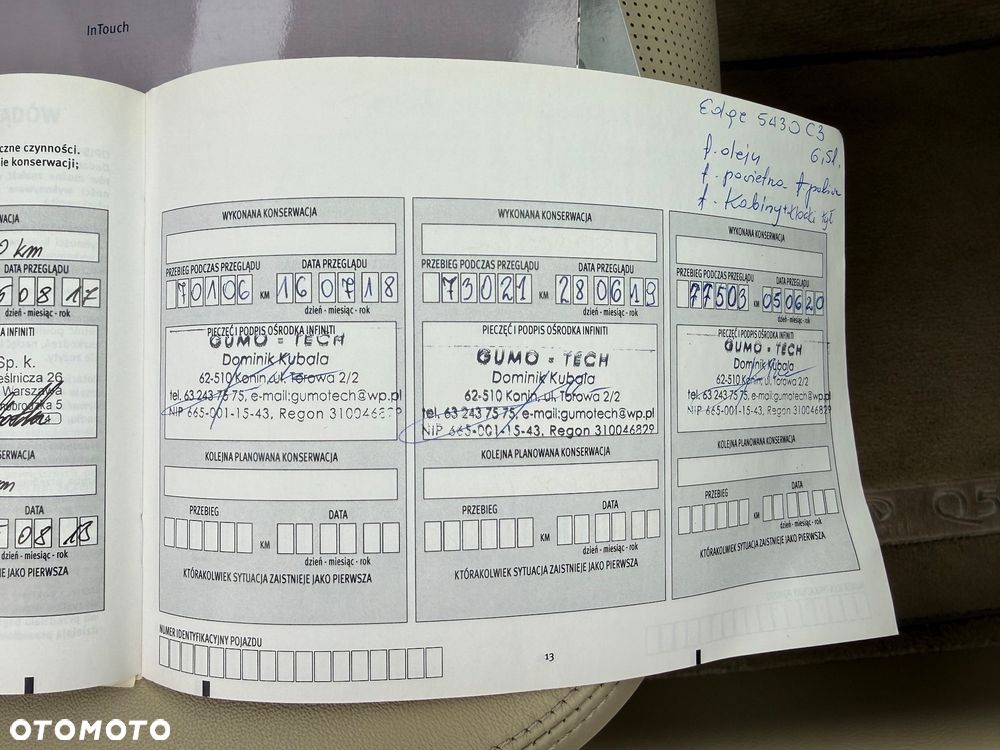 InTouch
ĄDÓW
czne czynności.
ie konserwacji;
WACJA
0 km
DATA PRZEGLĄDU
08 17
dzień - miesiąc - rok
A INFINITI
Sp. k.
eślnicza 26
Warszawa
5
ERWACJA
km
DATA
08 18
dzień - miesiąc - rok
E JAKO PIERWSZA
Edge 5W30 C3
6,5l.
f. oleju
f. powietrza f paliw
f. Kabiny+klocki tył
WYKONANA KONSERWACJA
PRZEBIEG PODCZAS PRZEGLĄDU DATA PRZEGLĄDU
70106 KM 160718
dzień - miesiąc - rok
PIECZĘĆ I PODPIS OŚRODKA INFINITI
GUMO - TECH
Dominik Kubala
62-510 Konin, ul. Torowa 2/2
tel. 63 243 75 75, e-mail:gumotech@wp.pl
NIP 665-001-15-43, Regon 310046829
KOLEJNA PLANOWANA KONSERWACJA
PRZEBIEG DATA
KM
dzień - miesiąc - rok
KTÓRAKOLWIEK SYTUACJA ZAISTNIEJE JAKO PIERWSZA
WYKONANA KONSERWACJA
PRZEBIEG PODCZAS PRZEGLĄDU DATA PRZEGLĄDU
73021 KM 280619
dzień - miesiąc - rok
PIECZĘĆ I PODPIS OŚRODKA INFINITI
GUMO - TECH
Dominik Kubala
62-510 Konin, ul. Torowa 2/2
tel. 63 243 75 75, e-mail:gumotech@wp.pl
NIP 665-001-15-43, Regon 310046829
KOLEJNA PLANOWANA KONSERWACJA
PRZEBIEG DATA
KM
dzień - miesiąc - rok
KTÓRAKOLWIEK SYTUACJA ZAISTNIEJE JAKO PIERWSZA
WYKONANA KONSERWACJA
PRZEBIEG PODCZAS PRZEGLĄDU DATA PRZEGLĄDU
77503 KM 050620
dzień - miesiąc - rok
PIECZĘĆ I PODPIS OŚRODKA INFINITI
GUMO - TECH
Dominik Kubala
62-510 Konin, ul. Torowa 2/2
tel. 63 243 75 75, e-mail:gumotech@wp.pl
NIP 665-001-15-43, Regon 310046829
KOLEJNA PLANOWANA KONSERWACJA
PRZEBIEG DATA
KM
dzień - miesiąc - rok
KTÓRAKOLWIEK SYTUACJA ZAISTNIEJE JAKO PIERWSZA
NUMER IDENTYFIKACYJNY POJAZDU
13
OTOMOTO